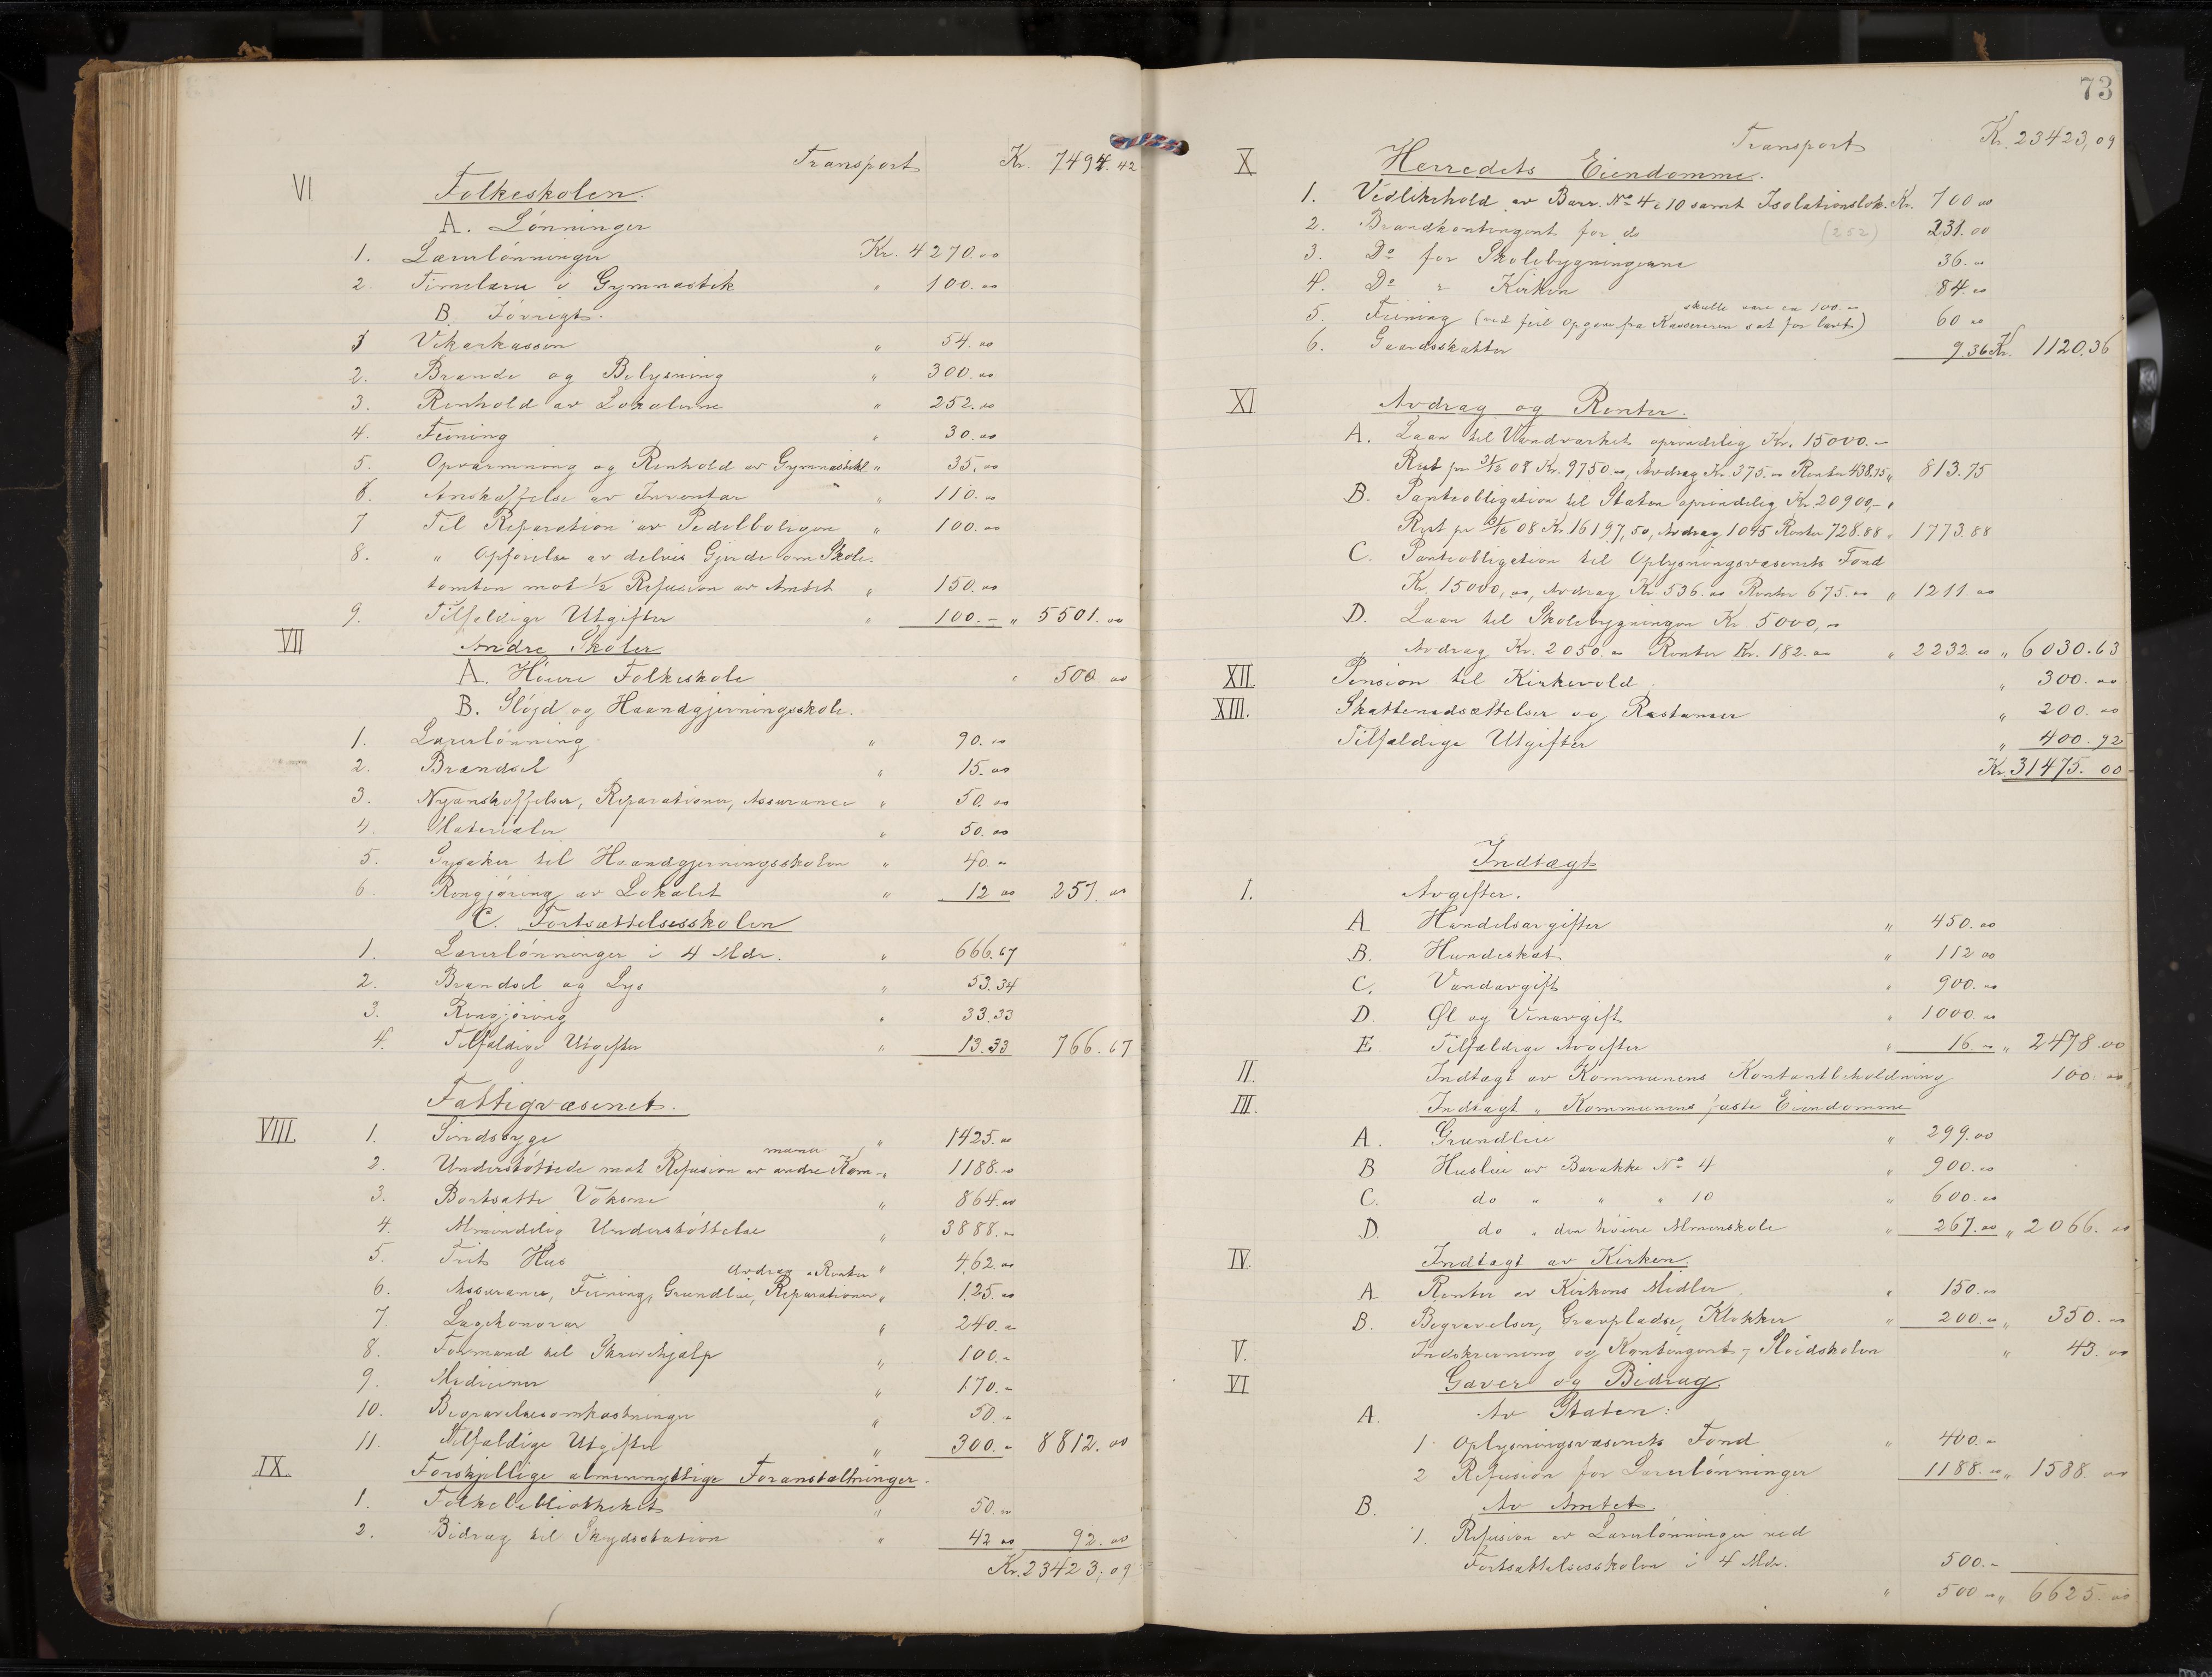 Transport Kr. 7494.42
VI Folkeskolen.
A. Lönninger
1. Lærerlönninger Kr. 4270.00
2. Timelærer i Gymnastik " 100.00
B. Iövrigt.
1 Vikarkassen " 54.00
2. Brænde og Belysning " 300.00
3. Renhold av Lokalerne " 252.00
4. Feining " 30.00
5. Opvarmning og Renhold av Gymnastikl " 35.00
6. Anskaffelse av Inventar " 110.00
7 Til Reparation av Pedelboligen " 100.00
8. " Opförelse av delvis Gjerde om Skole-
tomten mot 1/2 Refusion av Amtet " 150.00
9. Tilfældige Utgifter " 100.- " 5501.00
VII Andre Skoler
A. Höiere Folkeskole " 500.00
B. Slöjd og Haandgjerningsskole.
1. Lærerlönning " 90.00
2. Brændsel " 15.00
3. Nyanskaffelser, Reparationer, Assurance " 50.00
4. Materialer " 50.00
5. Sysaker til Haandgjerningsskolen " 40.-
6. Rengjöring av Lokalet " 12.00 257.00
C. Fortsættelsesskolen
1. Lærerlönninger i 4 Mdr. " 666.67
2. Brændsel og Lys " 53.34
3. Rengjöring " 33.33
4. Tilfældige Utgifter " 13.33 766.67
Fattigvæsenet.
VIII 1. Sindssyge " 1425.00
2. Understöttede mot Refusion av andre Kom- " 1188.00
muner
3. Bortsatte Voksne " 864.00
4. Almindelig Understöttelse " 3888.00
5. Frit Hus " 462.00
Avdrag & Renter
6. Assurance, Feining, Grundleie, Reparationer " 125.00
7. Lægehonorar " 240.00
8. Formand til Skrivehjælp " 100.-
9. Mediciner " 170.-
10. Begravelsesomkostninger " 50.-
11. Tilfældige Utgifter " 300.- 8812.00
IX. Forskjellige almennyttige Foranstaltninger.
1. Folkebibliotheket " 50.00
2. Bidrag til Skydsstation " 42.00 92.00
Kr. 23423,09
73
Transport Kr. 23423,09
X Herredets Eiendomme.
1. Vedlikehold av Barr. No 4 & 10 samt Isolationslok. Kr. 700.00
2. Brandkontingent for do (252) 231.00
3. Do for Skolebygningerne 36.00
4. Do " Kirken 84.00
skulle være ca 100.-
5. Feining (ved feil Opgave fra Kassereren sat for lavt) 60.00
6. Gaardsskatter 9.36 Kr. 1120.36
XI Avdrag og Renter.
A. Laan til Vandværket oprindelig Kr. 15000.-
Rest pr 31/12 08 Kr. 9750.00, Avdrag Kr. 375.00 Renter 438.75 " 813.75
B. Panteobligation til Staten oprindelig Kr. 20900,-
Rest pr 31/12 08 Kr. 16197,50, Avdrag 1045 Renter 728.88 " 1773.88
C. Panteobligation til Oplysningsvæsenets Fond
Kr. 15000,00, Avdrag Kr. 536.00 Renter 675.00 " 1211.00
D. Laan til Skolebygningen Kr. 5000,00
Avdrag Kr. 2050.00 Renter Kr. 182.00 " 2232.00 " 6030.63
XII. Pension til Kirkevold " 300.00
XIII. Skattenedsættelser og Restancer " 200.00
Tilfældige Utgifter " 400.92
Kr. 31475.00
Indtægt
I. Avgifter.
A Handelsavgifter " 450.00
B. Hundeskat " 112.00
C. Vandavgift " 900.00
D. Øl og Vinavgift " 1000.00
E. Tilfældige Avgifter " 16.00 " 2478.00
II. Indtægt av Kommunens Kontantbeholdning 100.00
III. Indtægt " Kommunens faste Eiendomme
A. Grundleie " 299.00
B Husleie av Barakke No 4 " 900.00
C. do " " " 10 " 600.00
D. do " den höiere Almenskole " 267.00 " 2066.00
IV. Indtægt av Kirken.
A Renter av Kirkens Midler " 150.00
B. Begravelser, Gravpladse, Klokker " 200.00 " 350.00
V. Indskrivning og Kontingent, Slöidskolen " 43.00
VI Gaver og Bidrag
A. Av Staten:
1 Oplysningsvæsenets Fond " 400.-
2 Refusion for Lærerlönninger 1188.00 " 1588.00
B. Av Amtet
1. Refusion av Lærerlönninger ved
Fortsættelsesskolen i 4 Mdr. 500.-
" 500.00 " 6625.00